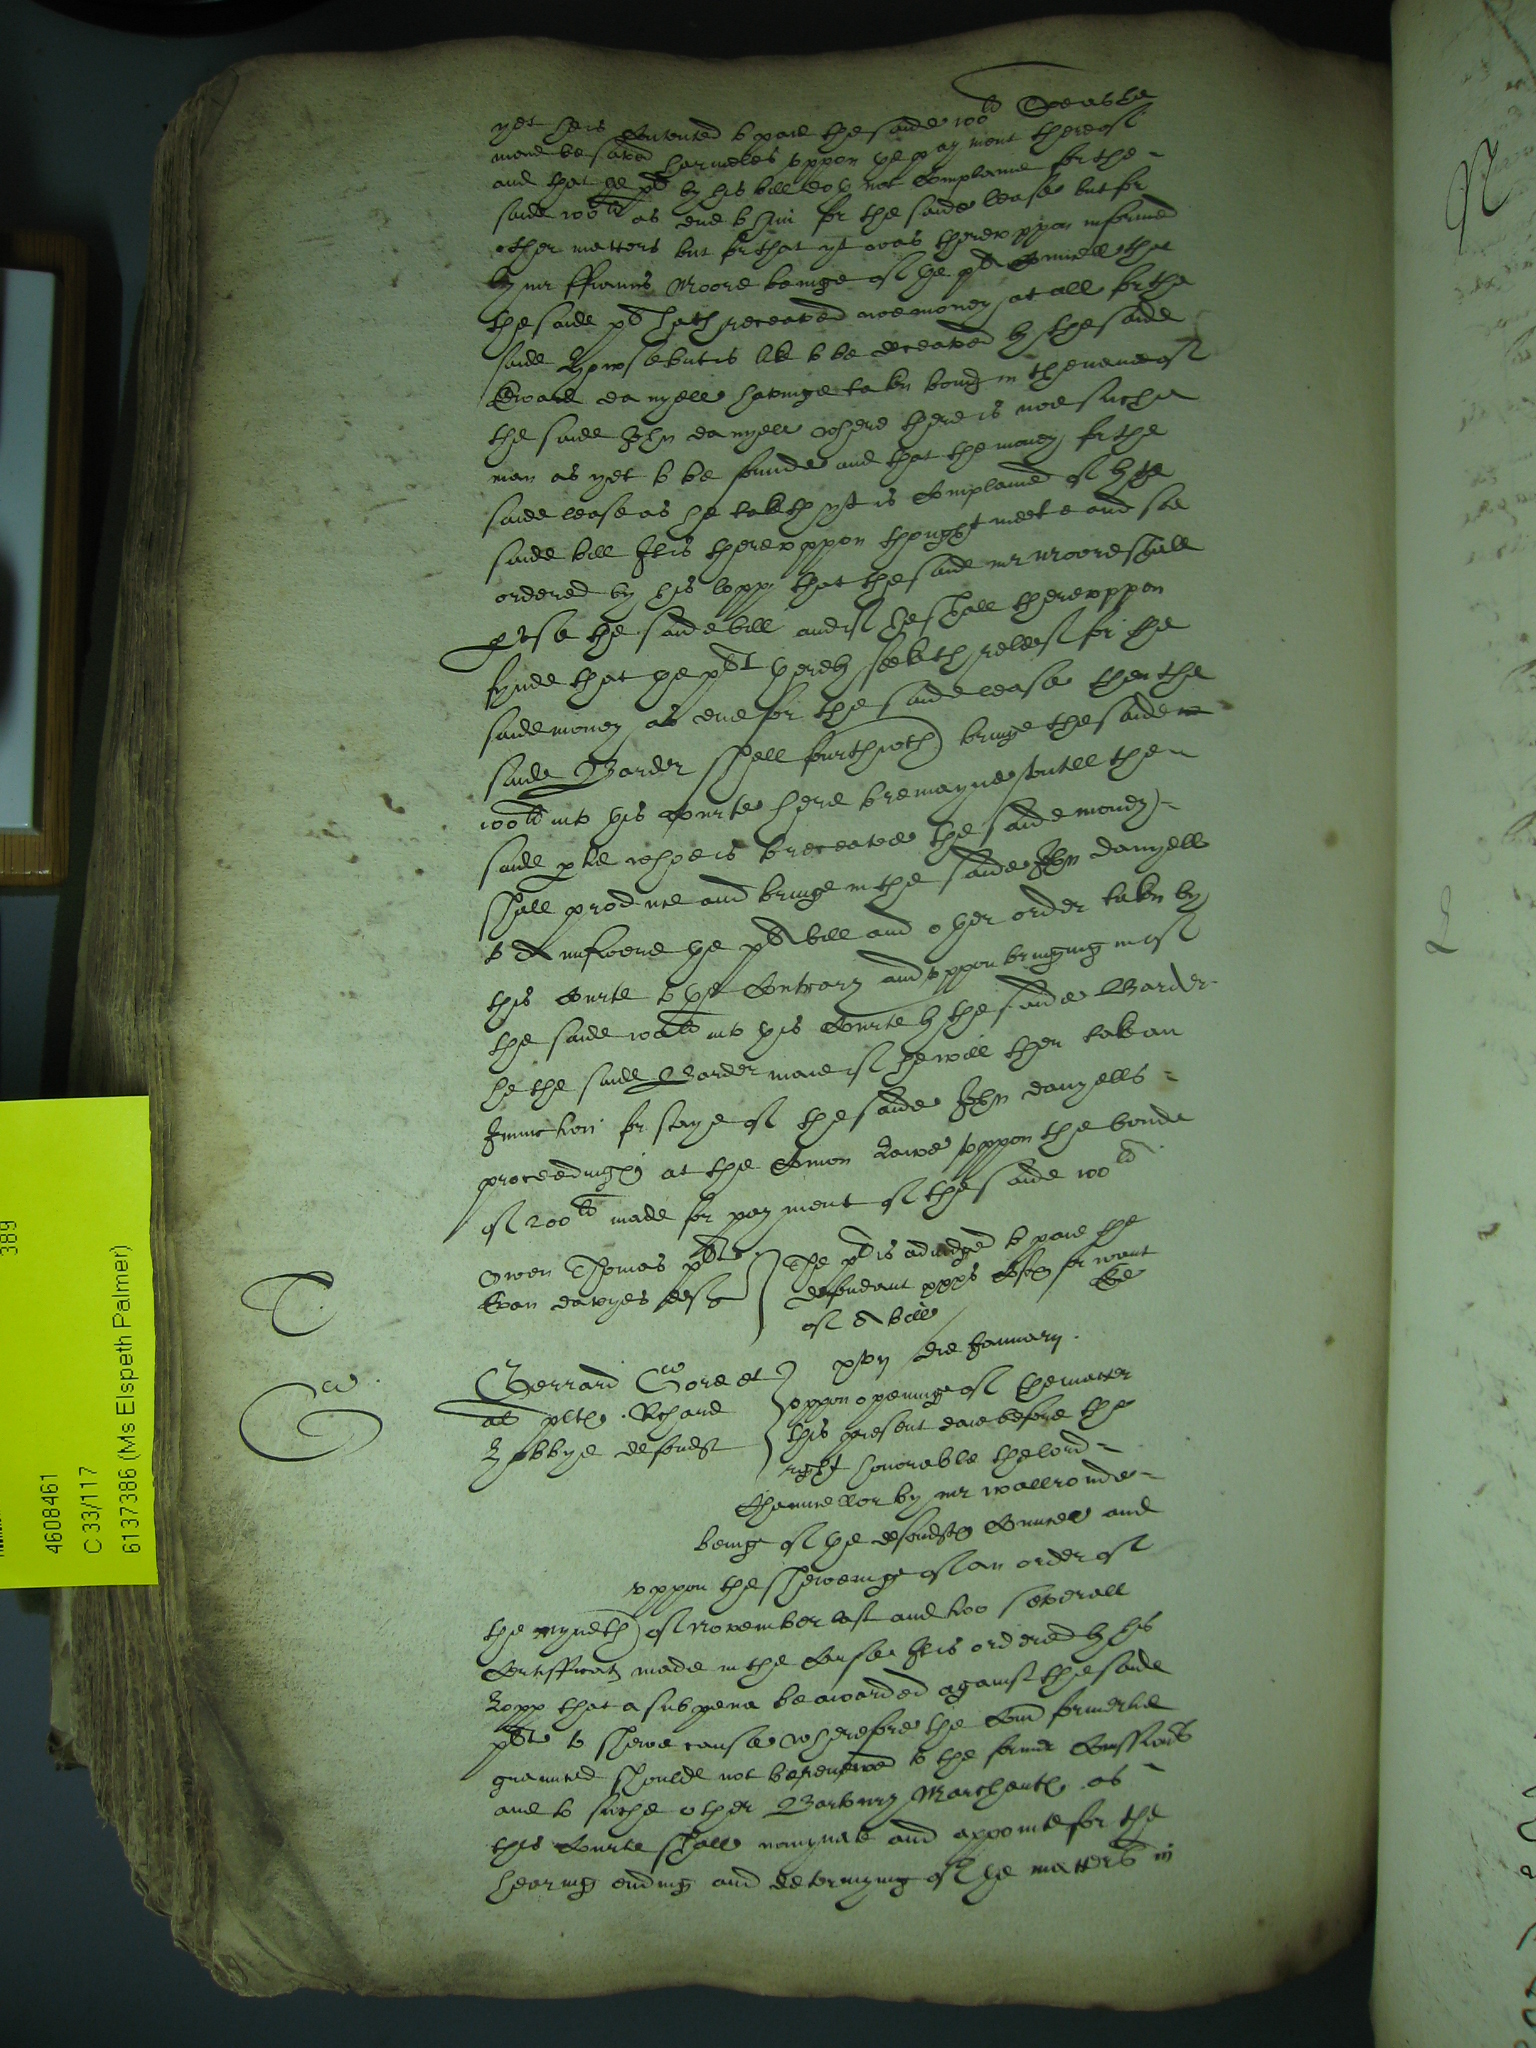 yet he is contented to paie the saide 100li soe as he
maie be saved harmeles uppon the payment thereof
and that the plt by his bill doth not complaine for the
saide 100li as due to him for the saide lease but for
other matters but for that yt was thereuppon informed
by mr ffraunces Moore beinge of the plts councell that
the saide plt hath receaved noe money at all for the
saide but is like to be deceaved by the saide
Edward danyell havinge taken bond in the name of
the saide John danyell where there is noe suche
man as yet to be founde and that the money for the
saide lease as he taketh yt is complained of by the
saide bill It is thereuppon thought meete and soe
ordered by his lopp that the saide mr Moore shall
pvse the saide bill and if he shall thereuppon
fynde that the plt therby seeketh releef for the
saide money as due for the saide lease then the
saide Barder shall fourthwth bringe the saide
100li into this courte here to remayne untill the
saide ptie whoe is to receave the saide money
shall produce and bringe in the saide John danyell
to answere the plts bill and other order taken by
this courte to the contrary and uppon bringing in of
the saide 100li into this courte by the saide Barder
he the saide Barder maie if he will then take an
Iniunction for staye of the saide John danyells
proceedings at the comon Lawe uppon the bonde
of 200li made for payment of the saide 100li
T
Owen Thomas plt
Evan davyes deft
The plt is adiudged to paie the
defendant costs for want
of a bill
xvii die January
G
Gerrard Gore et
al plts Richard
defendt
uppon openinge of the matter
this present daie before the
right honorable the Lord
Chauncellor by mr wallronde
being of the defendts councell and
uppon the shewinge of an order of
the nyneth of November last and two severall
certifficats made in the cause It is ordered by his
Lopp that a subpena be awarded against the saide
plt to shewe cause wherefore the Com formerlie
graunted shoulde not be renewed to the former Comissioners
and to suche other Barbury Marchents as
this courte shall nomynate and appointe for the
hearing ending and determyning of the matters in
389
4608461
C 33/117
6137386 (Ms Elspeth Palmer)